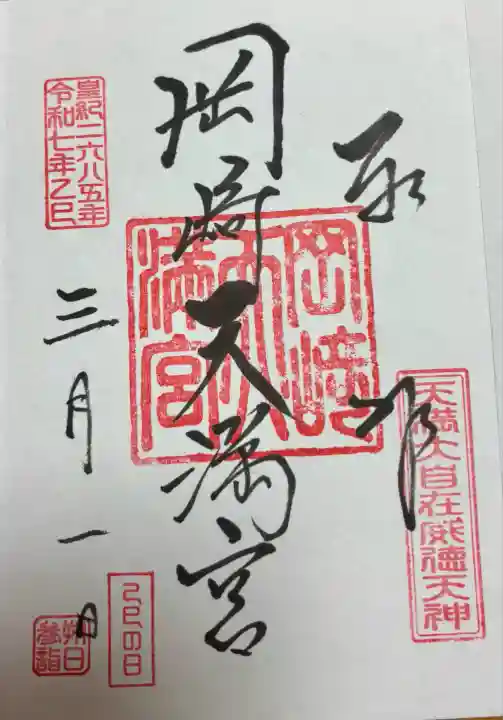 奉拝
天満大自在威徳天神
岡崎天満宮
岡崎天満宮
皇紀二六八五年
令和七年乙巳
三月一日
乙巳の日
朔日参詣